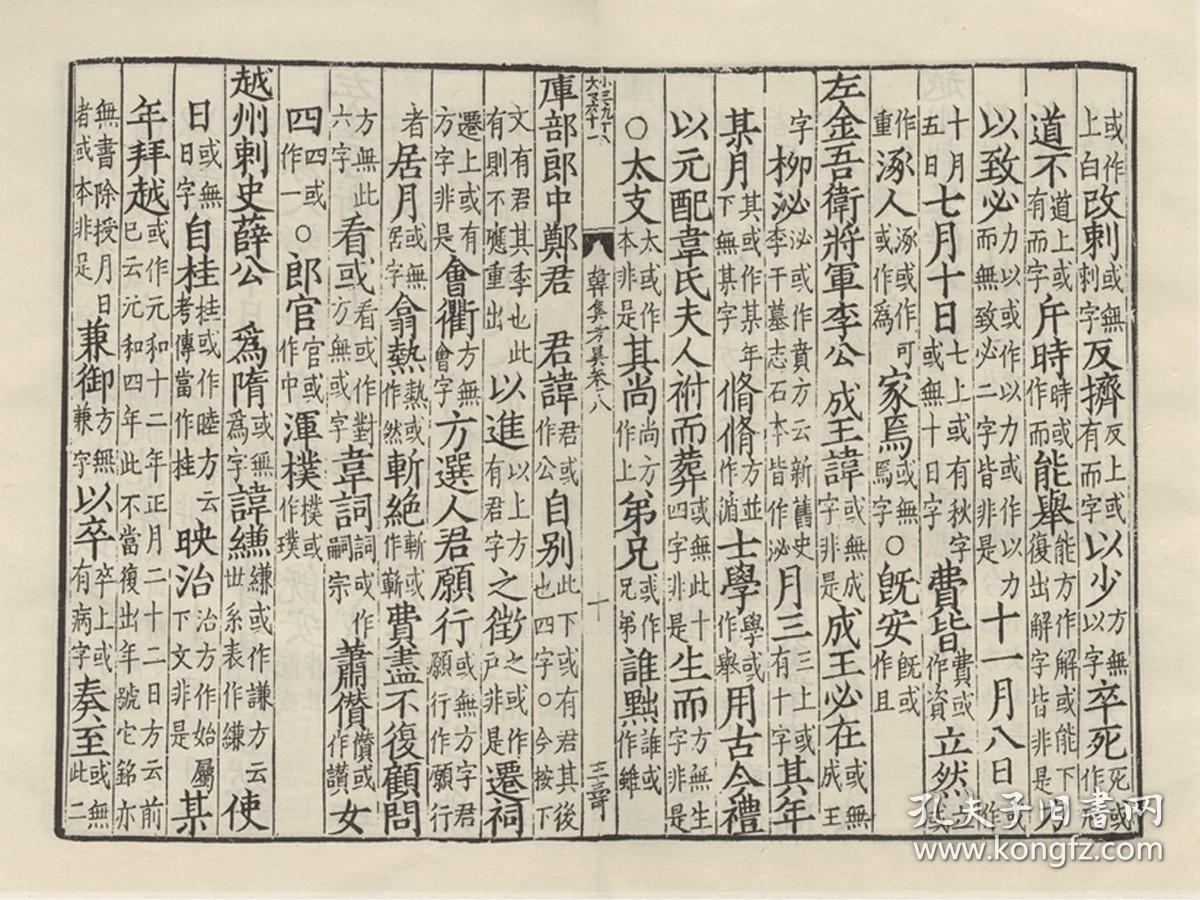 或作上白改刺或無刺字反擠反上或有而字以少方無以字卒死死或作志
道不道上或有而字斤時時或作而能舉能方作解或能下復出解字皆非是
以致必力以或作以力或作以力而無致必二字皆非是十一月八日
十月五日七月十日七上或有秋字或無十日字費皆費或作資立然
重作涿人涿或作爲或作可家焉或無焉字○旣安旣或作且
左金吾衛將軍李公 成王諱或無成字非是成王必在或無成王
字柳泌泌或作賁方云新舊史李干墓志石本皆作泌月三三上或有十字其年
某月其或作某年下無其字脩脩方並作循士學學或作舉用古今禮
以元配韋氏夫人祔而葬或無此十四字非是生而方無生而字非是
○太支太或作本非是其尚尚方作上弟兄或作兄弟誰黙誰或作雖
小三九十八
大五六十一
韓集考異卷八
十
三壽
庫部郎中鄭君 君諱君或作公自别此下或有君其後也四字○今按下
文有君其季也此有則不應重出以進以上方有君字之徴之或作戶非是遷祠
遷上或有方字非是會衢方無會字方選人君願行或無方字君願行作願行
者居月或無居字翕熱熱或作然斬絶斬或作嶄費盡不復顧問
方無此六字看或看或作對方無或字韋詞詞或作嗣宗蕭儹儹或作讃女
四四或作一○郎官官或作中渾樸樸或作璞
越州刺史薛公 爲隋或無爲字諱㒹或作謙方云世系表作縑使
日或無日字自桂桂或作睦方云考傳當作桂映治治方作始屬下文非是某
年拜越或作元和十二年正月二十二日方云前巳云元和四年此不當復出年號它銘亦
無書除授月日者或本非是兼御方無兼字以卒卒上或有病字奏至或無此二
孔夫子旧書网
www.kongfz.com